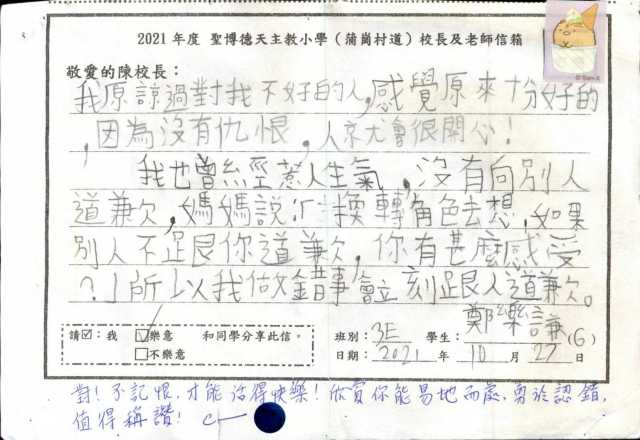 2021 年度 聖博德天主教小學（蒲崗村道）校長及老師信箱
敬愛的陳校長：
我原諒過對我不好的人,感覺原來十分好的
,因為沒有仇恨，人就會很開心！
我也曾經惹人生氣，沒有向別人
道歉,媽媽說:「換轉角色去想,如果
別人不跟你道歉,你有甚麼感受
?」所以我做錯事會立刻跟人道歉。
請☑：我 ☑樂意 和同學分享此信。
□不樂意
班別：3E 學生：鄭樂謙(6)
日期：2021 年 10 月 27 日
對！不記恨，才能活得快樂！欣賞你能易地而處，勇於認錯，
值得稱讚！